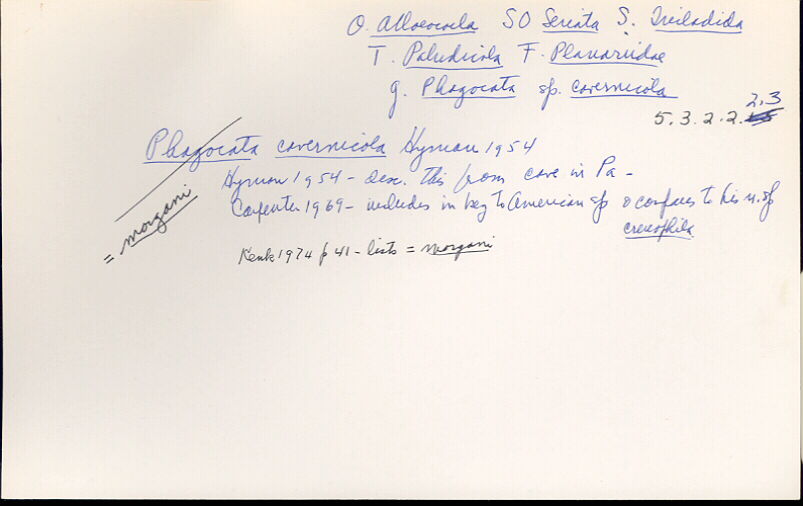 O. Alloeocoela SO Seriata S. Tricladida
T. Paludicola F. Planariidae
g. Phagocata sp. cavernicola
2.3
5.3.2.2.
Phagocata cavernicola Hyman 1954
Hyman 1954 - desc. this from cave in Pa -
Carpenter 1969 - includes in key to American sp & compares to his n. sp
crenophila
= morgani
Kenk 1974 p 41 - lists = morgani